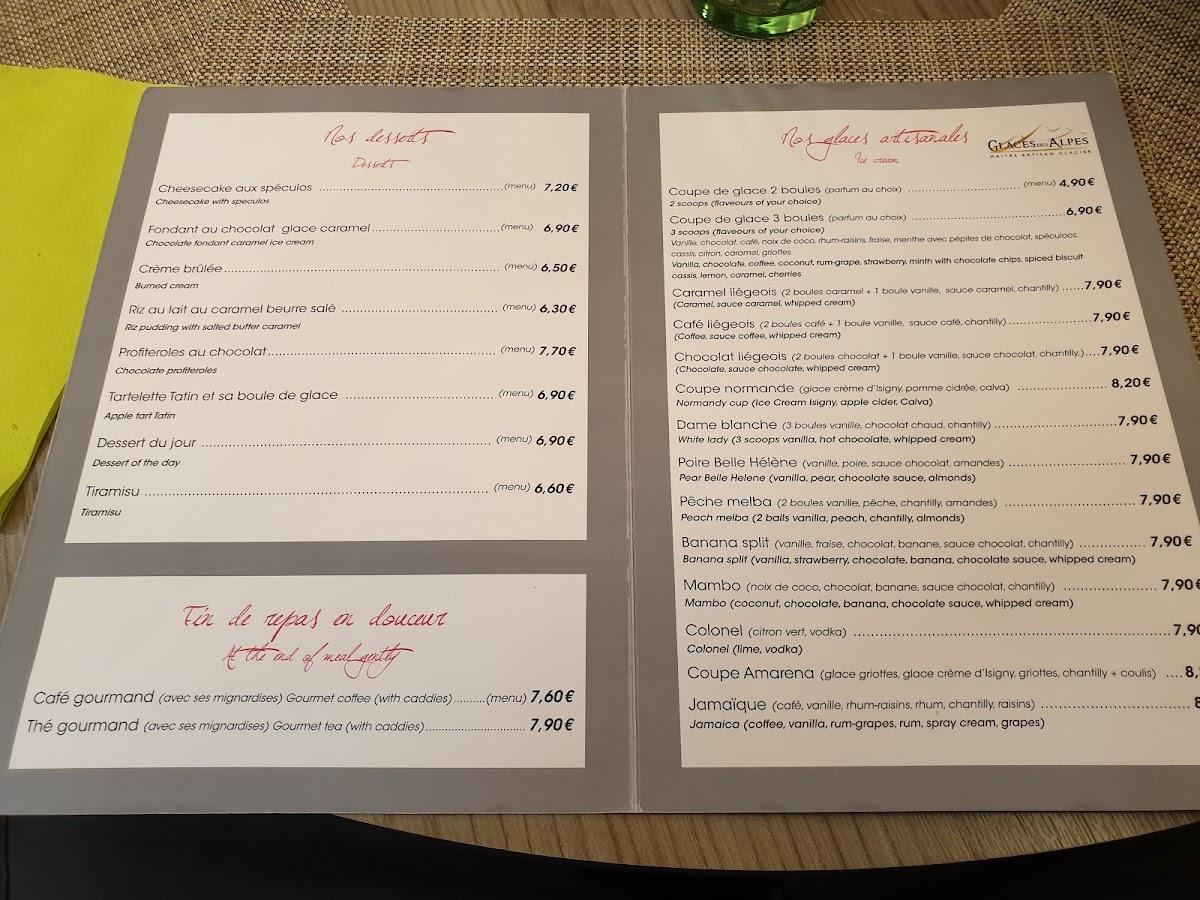 Nos desserts
Desserts
Cheesecake aux spéculos ........ (menu) 7,20€
Cheesecake with speculos
Fondant au chocolat glace caramel ........ (menu) 6,90€
Chocolate fondant caramel ice cream
Crème brûlée ........ (menu) 6,50€
Burned cream
Riz au lait au caramel beurre salé ........ (menu) 6,30€
Riz pudding with salted butter caramel
Profiteroles au chocolat ........ (menu) 7,70€
Chocolate profiteroles
Tartelette Tatin et sa boule de glace ........ (menu) 6,90€
Apple tart Tatin
Dessert du jour ........ (menu) 6,90€
Dessert of the day
Tiramisu ........ (menu) 6,60€
Tiramisu
Fin de repas en douceur
At the end of meal gently
Café gourmand (avec ses mignardises) Gourmet coffee (with caddies) ........ (menu) 7,60€
Thé gourmand (avec ses mignardises) Gourmet tea (with caddies) ........ 7,90€
Nos glaces artisanales
Ice cream
GLACES DES ALPES
MAITRE ARTISAN GLACIER
Coupe de glace 2 boules (parfum au choix) ........ (menu) 4,90€
2 scoops (flaveours of your choice)
Coupe de glace 3 boules (parfum au choix) ........ 6,90€
3 scoops (flaveours of your choice)
Vanille, chocolat, café, noix de coco, rhum-raisins, fraise, menthe avec pépites de chocolat, spéculoos,
cassis, citron, caramel, griottes
Vanilla, chocolate, coffee, coconut, rum-grape, strawberry, minth with chocolate chips, spiced biscuit
cassis, lemon, caramel, cherries
Caramel liégeois (2 boules caramel + 1 boule vanille, sauce caramel, chantilly) ...... 7,90€
(Caramel, sauce caramel, whipped cream)
Café liégeois (2 boules café + 1 boule vanille, sauce café, chantilly) ........ 7,90€
(Coffee, sauce coffee, whipped cream)
Chocolat liégeois (2 boules chocolat + 1 boule vanille, sauce chocolat, chantilly,) .... 7,90€
(Chocolate, sauce chocolate, whipped cream)
Coupe normande (glace crème d'Isigny, pomme cidrée, calva) ........ 8,20€
Normandy cup (Ice Cream Isigny, apple cider, Calva)
Dame blanche (3 boules vanille, chocolat chaud, chantilly) ........ 7,90€
White lady (3 scoops vanilla, hot chocolate, whipped cream)
Poire Belle Hélène (vanille, poire, sauce chocolat, amandes) ........ 7,90€
Pear Belle Helene (vanilla, pear, chocolate sauce, almonds)
Pêche melba (2 boules vanille, pêche, chantilly, amandes) ........ 7,90€
Peach melba (2 balls vanilla, peach, chantilly, almonds)
Banana split (vanille, fraise, chocolat, banane, sauce chocolat, chantilly) ........ 7,90€
Banana split (vanilla, strawberry, chocolate, banana, chocolate sauce, whipped cream)
Mambo (noix de coco, chocolat, banane, sauce chocolat, chantilly) ........ 7,90€
Mambo (coconut, chocolate, banana, chocolate sauce, whipped cream)
Colonel (citron vert, vodka) ........ 7,90
Colonel (lime, vodka)
Coupe Amarena (glace griottes, glace crème d'Isigny, griottes, chantilly + coulis) .... 8,
Jamaïque (café, vanille, rhum-raisins, rhum, chantilly, raisins) ........ 8
Jamaica (coffee, vanilla, rum-grapes, rum, spray cream, grapes)